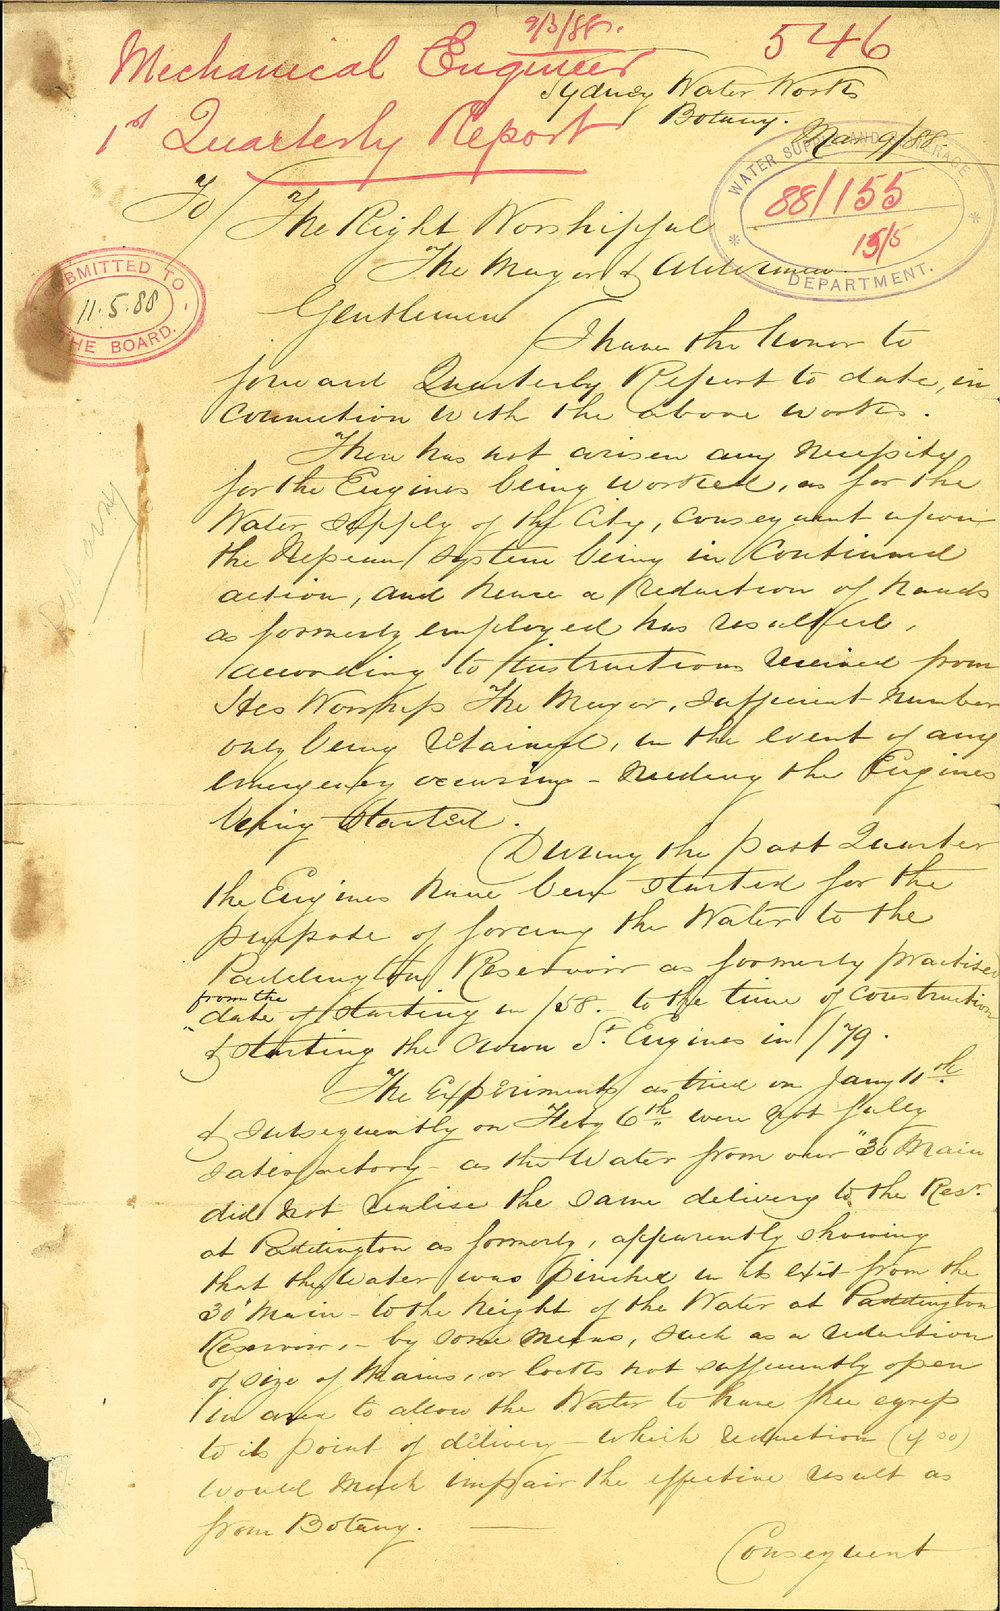 9/3/88.
546
Mechanical Engineer
1st Quarterly Report
Sydney Water Works
Botany.
Mar 9/88.
WATER SUPPLY AND SEWERAGE
88/155
15/5
DEPARTMENT.
SUBMITTED TO
11.5.88
THE BOARD.
To The Right Worshipful
The Mayor & Aldermen.
Gentlemen
I have the honor to
forward Quarterly Report to date, in
connection with the above works.
There has not arisen any necessity
for the Engines being worked, as for the
Water supply of the City, consequent upon
the Nepean system being in continued
action, and hence a reduction of hands
as formerly employed has resulted,
according to instructions received from
His Worship The Mayor, sufficient number
only being retained, in the event of any
emergency occurring - needing the Engines
being started.
During the past Quarter
the Engines have been started for the
purpose of forcing the Water to the
Paddington Reservoir as formerly practised
from the
date of starting in /58. to the time of construction
& starting the Crown St. Engines in /79.
The Experiments as tried on Jany 11th
& subsequently on Feby 6th were not fully
satisfactory - as the Water from our 30" Main
did not realise the same delivery to the Resr.
at Paddington as formerly, apparently showing
that the Water was pinched in its exit from the
30" Main - to the height of the Water at Paddington
Reservoir, - by some means, such as a reduction
of size of Mains, or Cocks not sufficiently open
in area to allow the Water to have free egress
to its point of delivery - which reduction (if so)
would much impair the effective result as
from Botany.
Consequent